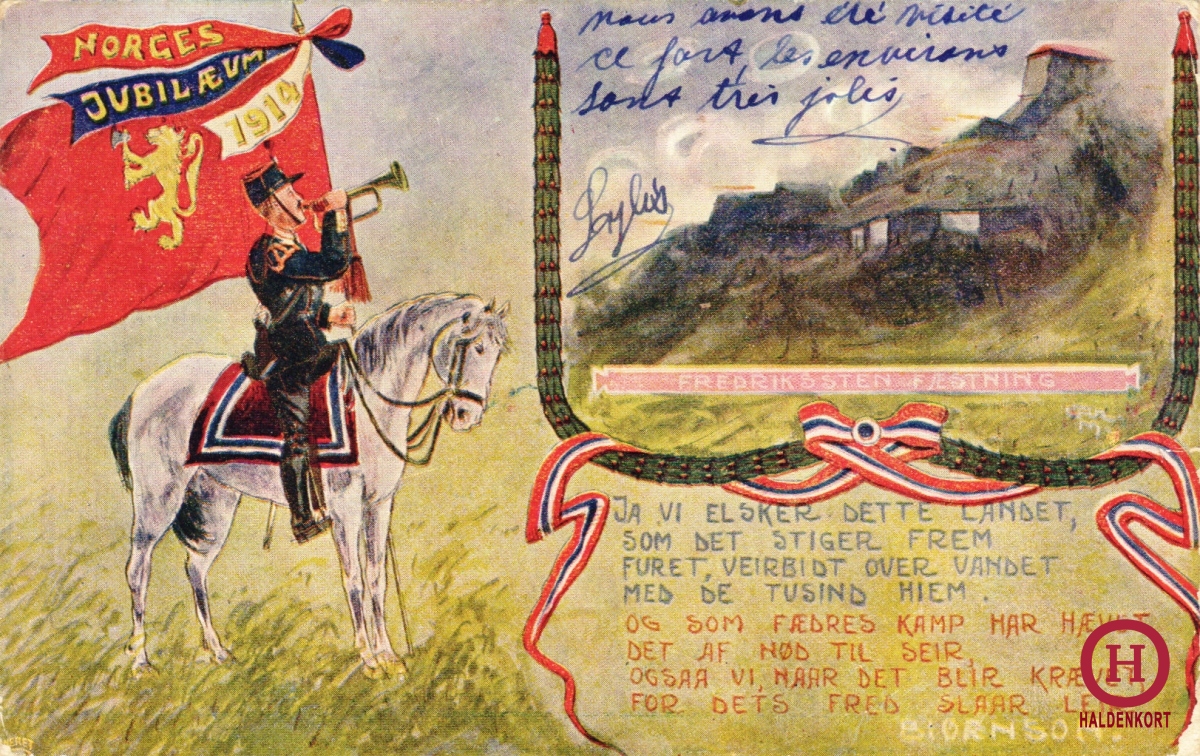 NORGES
JUBILÆUM
1914
nous avons été visité
ce fort, les environs
sont très jolis
FREDRIKSSTEN FÆSTNING
JA VI ELSKER DETTE LANDET,
SOM DET STIGER FREM
FURET, VEIRBIDT OVER VANDET
MED DE TUSIND HIEM.
OG SOM FÆDRES KAMP HAR HÆVET
DET AF NØD TIL SEIR,
OGSAA VI, NAAR DET BLIR KRÆV
FOR DETS FRED SLAAR LEIR
BJØRNSON.
H
HALDENKORT